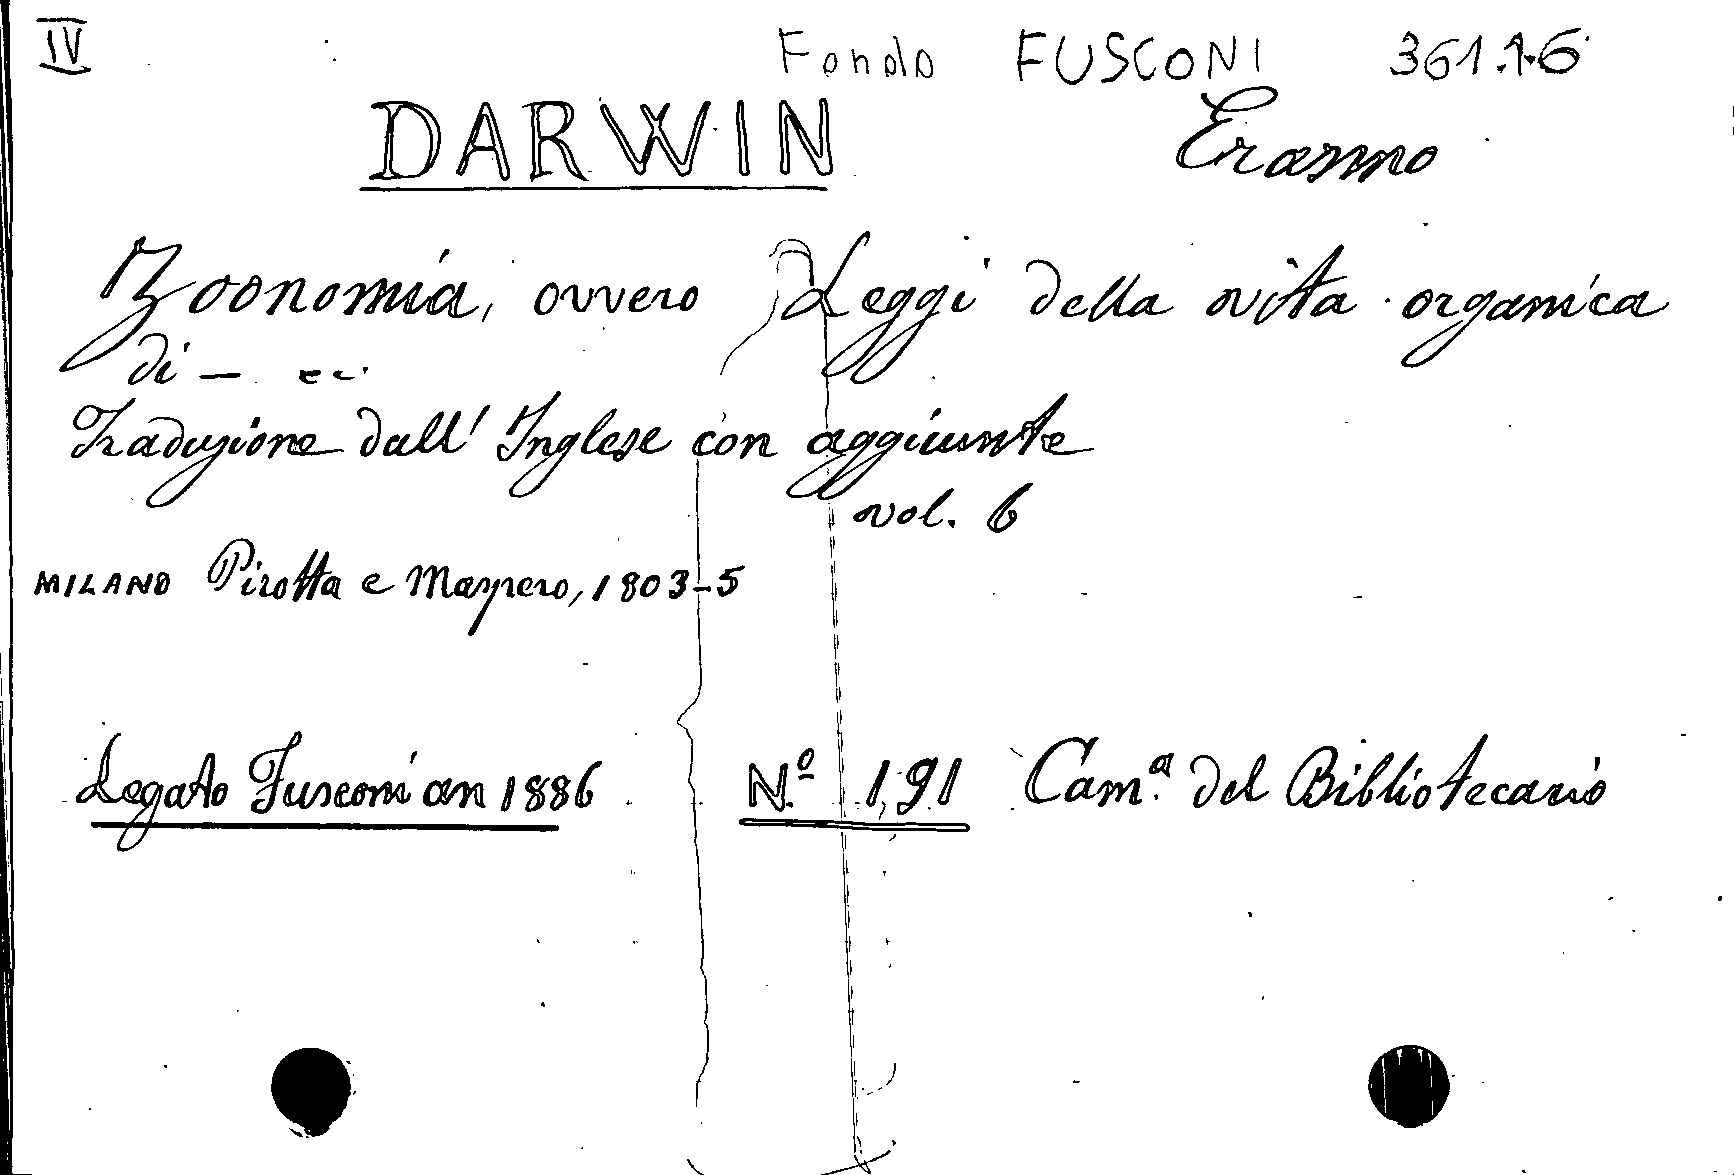 IV
Fondo FUSCONI 361.1-6
DARWIN Erasmo
Zoonomia, ovvero Leggi della vita organica
di — ec.
Traduzione dall' Inglese con aggiunte
vol. 6
MILANO Pirotta e Maspero, 1803-5
Legato Fusconi an 1886 N.º 191 Cam.ª del Bibliotecario